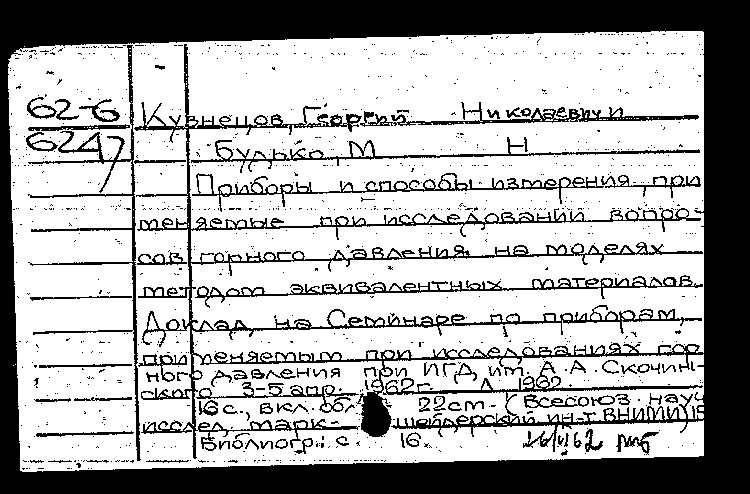 62-6
6247
Кузнецов, Георгий Николаевич и
Будько, М Н
Приборы и способы измерения, при
меняемые при исследовании вопро-
сов горного давления на моделях
методом эквивалентных материалов.
Доклад на Семинаре по приборам,
применяемым при исследованиях гор
ного давления при ИГД им. А.А. Скочин-
ского 3-5 апр. 1962г. Л 1962.
16 с., вкл. обл. 22см. (Всесоюз. науч
исслед. марк- шейдерский ин-т ВНИМИ)
Библиогр.: с. 16.